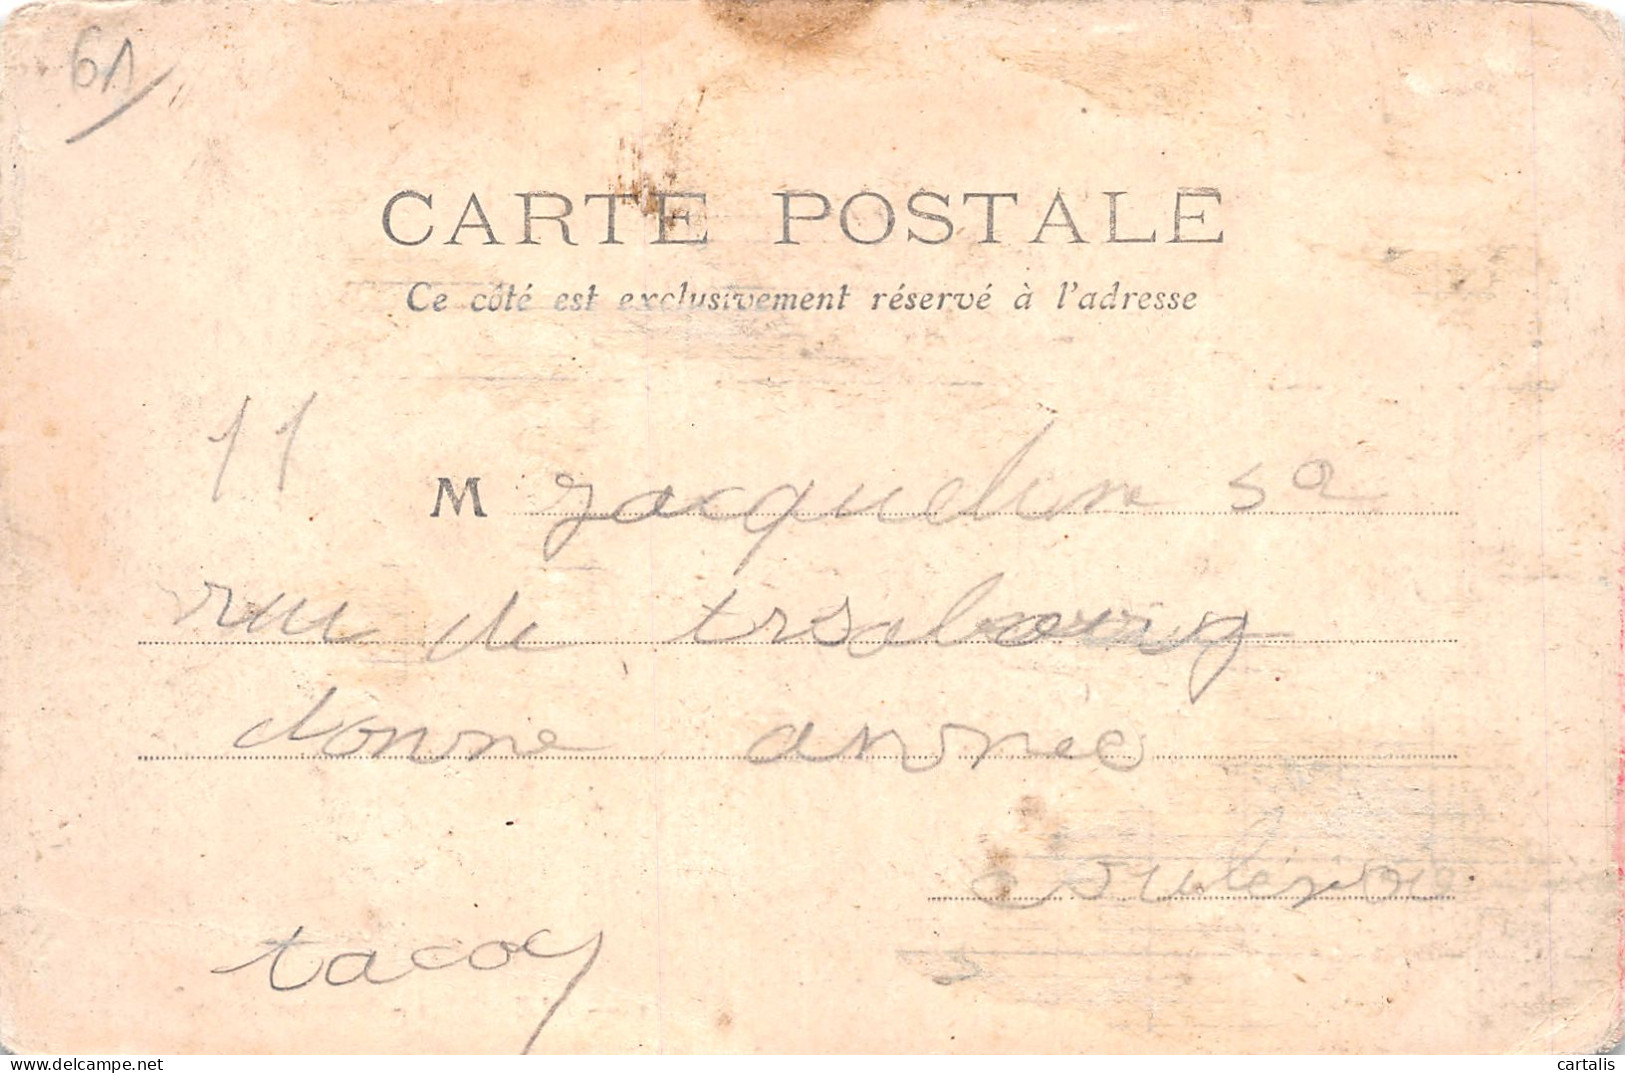 61
CARTE POSTALE
Ce côté est exclusivement réservé à l'adresse
11
M Jacqueline
rue de trsabourg
donne année
tacoy
delcampe.net
cartalis